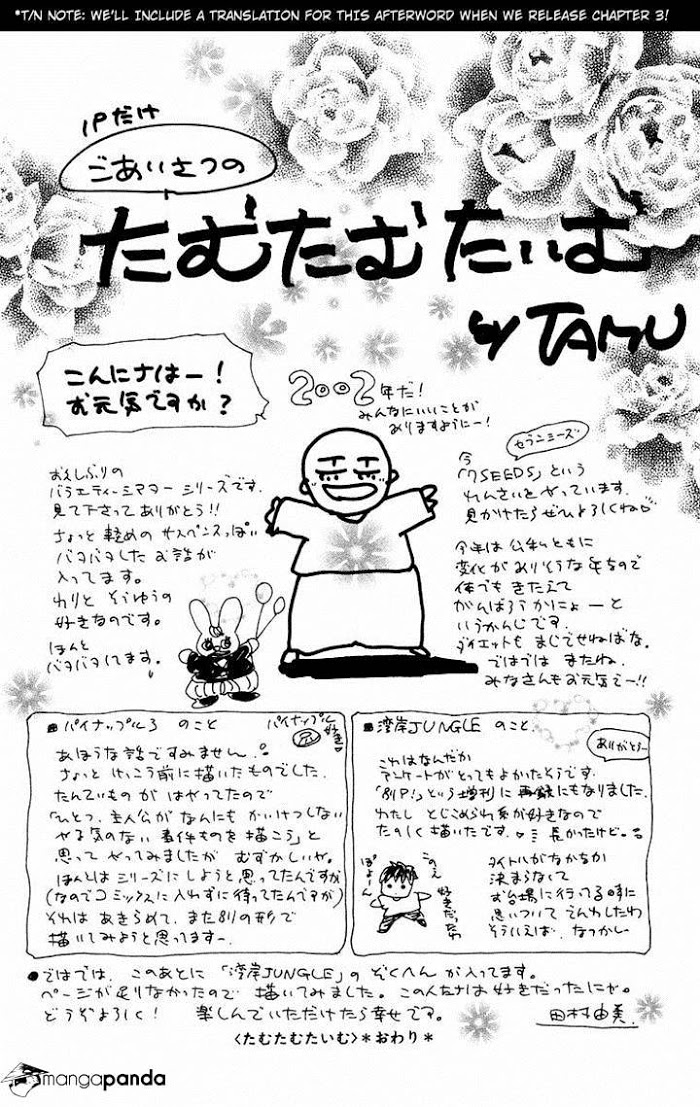 *T/N NOTE: WE'LL INCLUDE A TRANSLATION FOR THIS AFTERWORD WHEN WE RELEASE CHAPTER 3!
1Pだけ
ごあいさつの
たむたむたいむ
by TAMU
こんにちはー!
お元気ですか?
2002年だ!
みんなにいいことが
ありますようにー!
おひさしぶりの
バラエティーシアターシリーズです.
見て下さってありがとう!!
ちょっと軽めのサスペンスっぽい
バタバタしたお話が
入ってます。
わりとそうゆうの
好きなのです。
ほんと
バタバタしてます。
セブンシーズ
今
「7SEEDS」という
れんさいをやっています.
見かけたらぜひよろしくね
今年は公私ともに
変化がありそうな年なので
体でもきたえて
がんばろうかにょーと
いうかんじです.
ダイエットもまじでせねばな。
ではでは またね.
みなさんもお元気でー!!
■パイナップル3 のこと
パイナップル
好き
あほうな話ですみません.
ちょっとけっこう前に描いたものでした.
たんていものがはやってたので
「ひとつ、主人公がなんにもかいけつしない
やる気のない事件ものを描こう」と
思ってやってみましたがむずかしいや。
ほんとはシリーズにしようと思ってたんですが
(なのでコミックスに入れずに待ってたんですが)
それはあきらめて、また別の形で
描いてみようと思ってますー.
■湾岸JUNGLE のこと.
ありがとう
これはなんだか
アンケートがとってもよかったそうです.
「別P!」という増刊に再録にもなりました.
わたし とじこめられ系が好きなので
たのしく描いたです. 長かったけど。
タイトルがなかなか
決まらなくて
お台場に行ってる時に
思いついてでんわしたわ
そういえば. なつかしー
このえ
好きだったわ
ぽよーん
●ではでは、このあとに「湾岸JUNGLE」のぞくへんが入ってます。
ページが足りなかったので描いてみました。この人たちは好きだったにゃ。
どうぞよろしく! 楽しんでいただけたら幸せです。
田村由美.
〈たむたむたいむ〉*おわり*
mangapanda